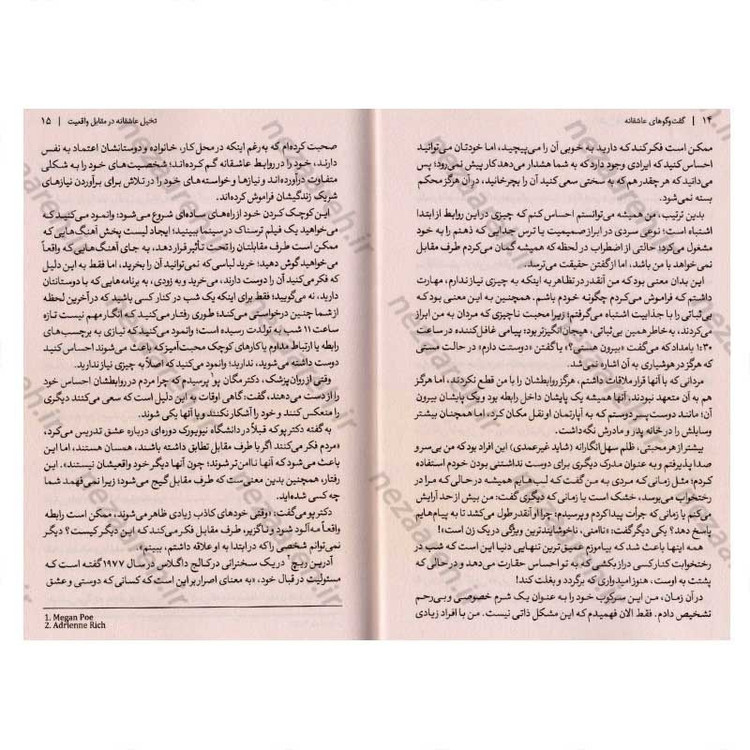 ۱۴ | گفت‌وگوهای عاشقانه
ممکن است فکر کند که دارید به خوبی آن را می‌پیچید، اما خودتان می‌توانید
احساس کنید که ایرادی وجود دارد که به شما هشدار می‌دهد کار پیش نمی‌رود؛ پس
می‌دانید که هر چقدر هم که به سختی سعی کنید آن را بچرخانید، در آن هرگز محکم
بسته نمی‌شود.
بدین ترتیب، من همیشه می‌توانستم احساس کنم که چیزی در این روابط از ابتدا
اشتباه است؛ نوعی سردی در ابراز صمیمیت یا ترس جدایی که ذهنم را به خود
مشغول می‌کرد؛ حالتی از اضطراب در لحظه که همیشه گمان می‌کردم طرف مقابل
نمی‌خواهد با من باشد، اما از گفتن حقیقت می‌ترسد.
این بدان معنی بود که من آنقدر در تظاهر به اینکه به چیزی نیاز ندارم، مهارت
داشتم که فراموش می‌کردم چگونه خودم باشم. همچنین به این معنی بود که
بی‌ثباتی را با جذابیت اشتباه می‌گرفتم؛ زیرا محبت ناچیزی که مردان به من ابراز
می‌کردند، به خاطر همین بی‌ثباتی، هیجان‌انگیزتر بود؛ پیامی غافل‌کننده در ساعت
۱:۳۰ بامداد که می‌گفت «بیرون هستی؟» یا گفتن «دوستت دارم» در حالت مستی
که هرگز در هوشیاری به آن اشاره نمی‌شد.
مردانی که با آنها قرار ملاقات داشتم، هرگز روابطشان را با من قطع نکردند، اما هرگز
هم به آن متعهد نبودند. آنها همیشه یک پایشان داخل رابطه بود و یک پایشان بیرون
آن؛ مانند دوست‌پسر دوستم که به آپارتمان او نقل مکان کرد، اما همچنان بیشتر
وسایلش را در خانه پدر و مادرش نگه داشت.
بیشتر از هر محبتی، ظلم سهل‌انگارانه (شاید غیرعمدی) این افراد بود که من بی‌سر و
صدا پذیرفتم و به عنوان مدرک دیگری برای دوست نداشتنی بودن خودم استفاده
کردم؛ مثل زمانی که مردی به من گفت که لب‌هایم همیشه در حالی که مرا در
رختخواب می‌بوسد، خشک است یا زمانی که دیگری گفت: من بیش از حد آرایش
می‌کنم یا زمانی که جرأت پیدا کردم و پرسیدم؛ چرا او آنقدر طول می‌کشد تا به پیام‌هایم
پاسخ دهد؟ یکی دیگر گفت: «ناامنی، ناخوشایندترین ویژگی در یک زن است»!
همه اینها باعث شد که بیاموزم عمیق‌ترین تنهایی دنیا این است که شب در
رختخوابت کنار کسی دراز بکشی که به تو احساس حقارت می‌دهد و در حالی که
پشتت به اوست، هنوز امیدواری که برگردد و بغلت کند!
در آن زمان، من این سرکوب خود را به عنوان یک شرم خصوصی و بی‌رحم
تشخیص دادم. فقط الان فهمیدم که این مشکل ذاتی نیست. من با افراد زیادی
تخیل عاشقانه در مقابل واقعیت | ۱۵
صحبت کرده‌ام که به رغم اینکه در محل کار، خانواده و دوستانشان اعتماد به نفس
دارند، خود را در روابط عاشقانه گم کرده‌اند؛ شخصیت‌های خود را به شکلی
متفاوت درآورده‌اند و نیازها و خواسته‌های خود را در تلاش برای برآوردن نیازهای
شریک زندگیشان فراموش کرده‌اند.
این کوچک کردن خود از راه‌های ساده‌ای شروع می‌شود؛ وانمود می‌کنید که
می‌خواهید یک فیلم ترسناک در سینما ببینید؛ ایجاد لیست پخش آهنگ‌هایی که
ممکن است طرف مقابلتان را تحت تأثیر قرار دهد، به جای آهنگ‌هایی که واقعاً
می‌خواهید گوش دهید؛ خرید لباسی که نمی‌توانید آن را بخرید، اما فقط به این دلیل
که فکر می‌کنید آن را دوست دارند، می‌خرید و به زودی، به برنامه‌هایی که با دوستانتان
دارید، نه می‌گویید؛ فقط برای اینکه یک شب در کنار کسی باشید که در آخرین لحظه
از شما چنین درخواستی می‌کند؛ طوری رفتار می‌کنید که انگار مهم نیست تازه
ساعت ۱۱ شب به تولدت رسیده است؛ وانمود می‌کنید که نیازی به برچسب‌های
رابطه یا ارتباط مداوم یا کارهای کوچک محبت‌آمیز که باعث می‌شوند احساس کنید
دوست داشته می‌شوید، ندارید؛ وانمود می‌کنید که اصلاً به چیزی نیاز ندارید.
وقتی از روان‌پزشک، دکتر مگان پو۱ پرسیدم که چرا مردم در روابطشان احساس خود
را از دست می‌دهند، گفت: گاهی اوقات به این دلیل است که سعی می‌کنند دیگری
را منعکس کنند و خود را آشکار نکنند و یا آنها یکی شوند.
به گفته دکتر پو که قبلاً در دانشگاه نیویورک دوره‌ای درباره عشق تدریس می‌کرد،
«مردم فکر می‌کنند اگر با طرف مقابل تطابق داشته باشند، همسان هستند، اما این
باعث می‌شود که آنها ناامن‌تر شوند؛ چون آنها دیگر خود واقعیشان نیستند». این
رفتار، همچنین بدین معنی است که طرف مقابل گیج می‌شود؛ زیرا نمی‌فهمد شما
چه کسی شده‌اید.
دکتر پو می‌گفت: «وقتی خودهای کاذب زیادی ظاهر می‌شوند، ممکن است رابطه
واقعاً مه‌آلود شود و ناگزیر، طرف مقابل فکر می‌کند که این دیگر کیست؟ دیگر
نمی‌توانم شخصی را که در ابتدا به او علاقه داشتم، ببینم».
آدرین ریچ۲ در یک سخنرانی در کالج داگلاس در سال ۱۹۷۷ گفته است که
مسئولیت در قبال خود، «به معنای اصرار بر این است که کسانی که دوستی و عشق
1. Megan Poe
2. Adrienne Rich
nezaareh.ir